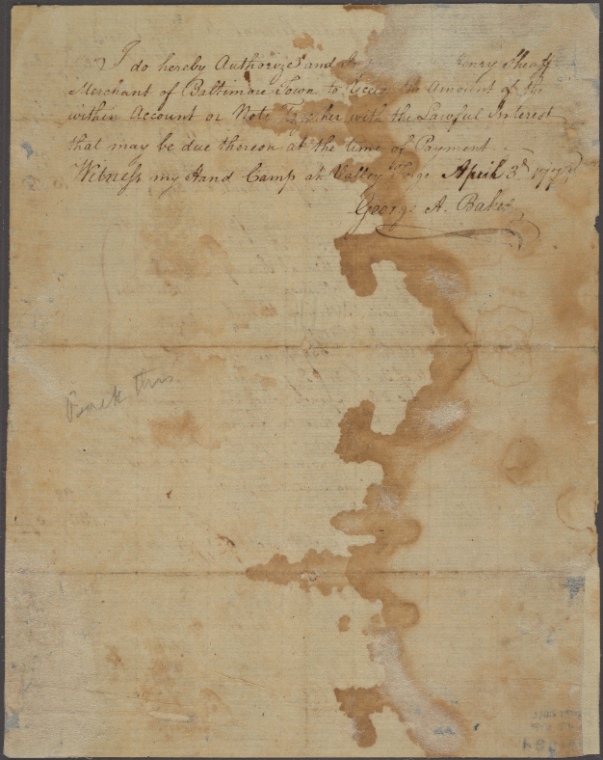 I do hereby Authorize and Henry Sheaff
Merchant of Baltimore Town to the Amount of the
within Account or Note Together with the Lawful Interest
that may be due thereon at the time of Payment
Witness my Hand Camp at Valley Forge April 3d
George A. Baker
Back this